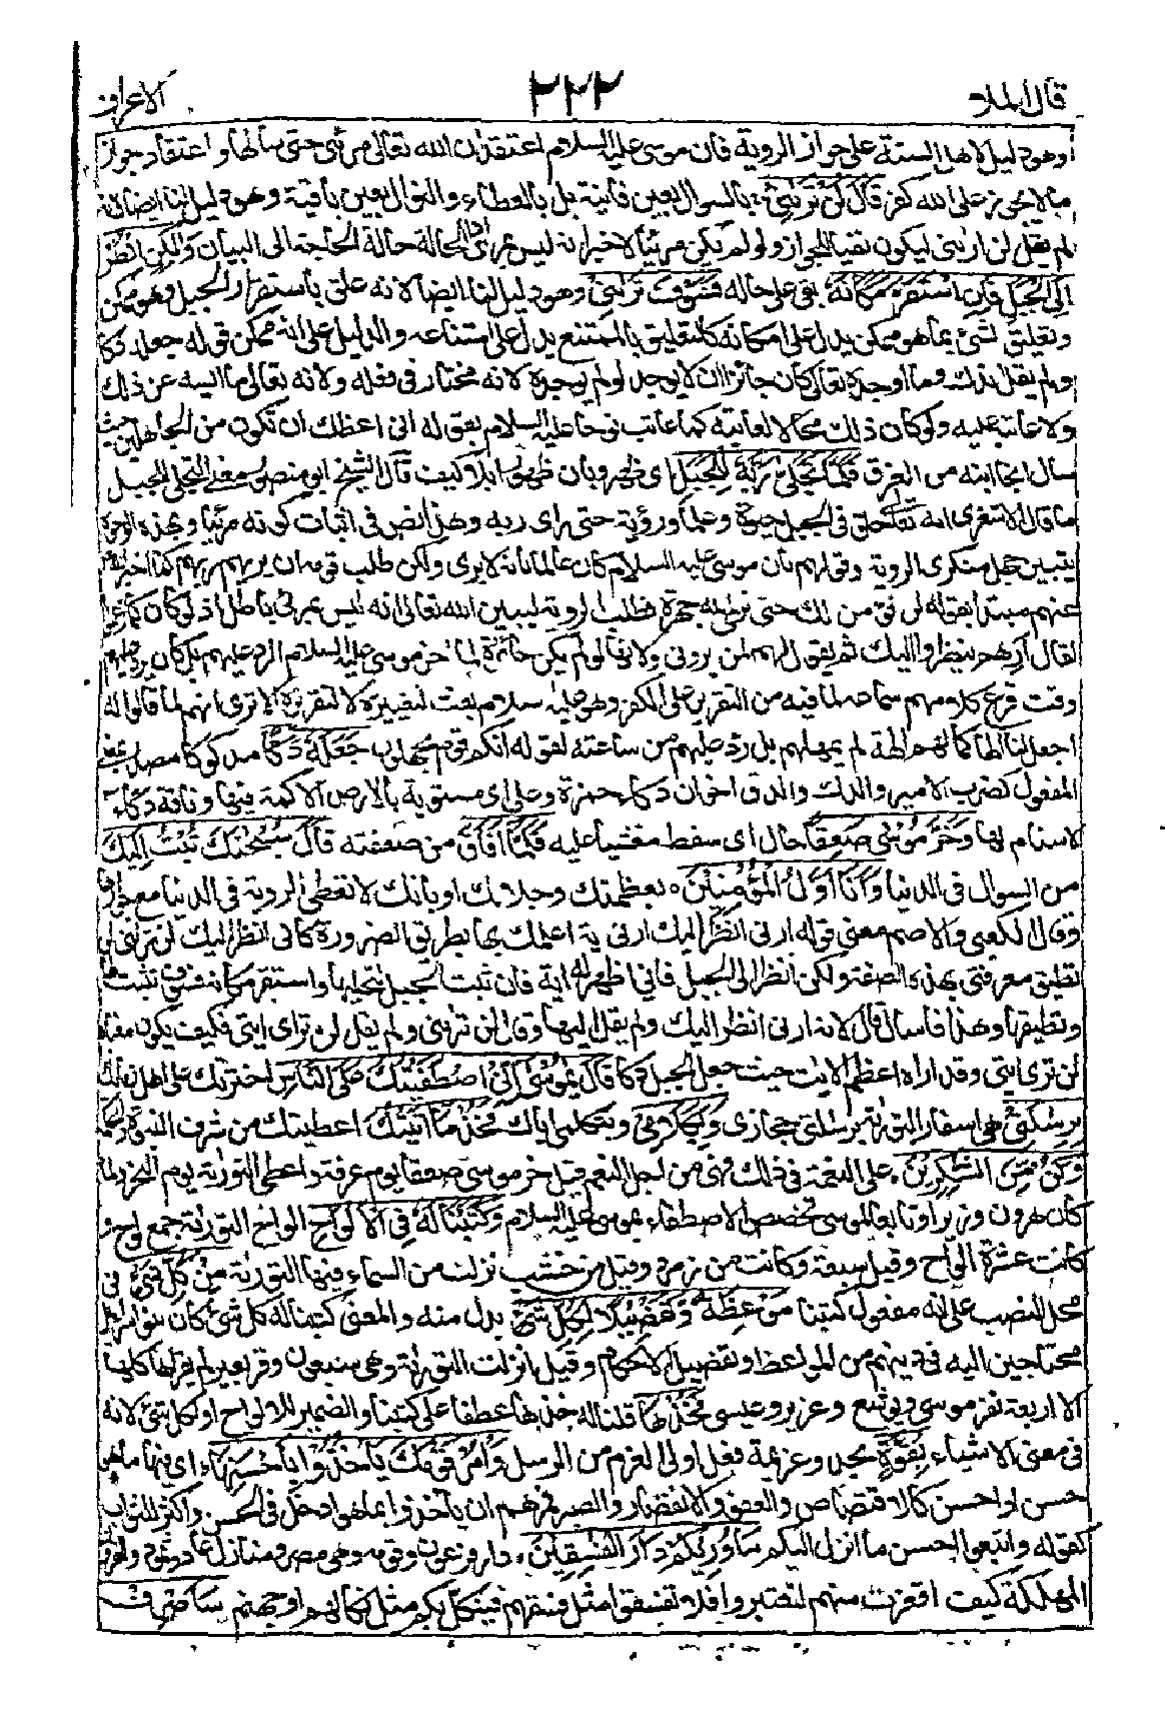 قال الملأ ٢٢٢ الاعراف
وهو دليل لاهل السنة على جواز الروية فان موسى عليه السلام اعتقد ان الله تعالى مرئى حتى سألها واعتقاد جواز
ما لا يجوز على الله كفر قَالَ لَنْ تَرٰىنِيْ بالسوال بعين فانية بل بالعطاء والنوال بعين باقية وهو دليل لنا ايضا لانه
لم يقل لن ارى ليكون نفيا للجواز ولو لم يكن مرئيا لاخبر انه ليس بمرئى اذ الحالة حالة الحاجة الى البيان وَلٰكِنِ انْظُرْ
اِلَى الْجَبَلِ فَاِنِ اسْتَقَرَّ مَكَانَهٗ بقى على حاله فَسَوْفَ تَرٰىنِيْ وهو دليل لنا ايضا لانه علق باستقرار الجبل وهو ممكن
وتعليق الشئ بما هو ممكن يدل على امكانه كالتعليق بالممتنع يدل على امتناعه والدليل على انه ممكن قوله جعله دكا
ولم يقل اندك وما اوجده تعالى كان جائزا ان لا يوجد لو لم يوجده لانه مختار فى فعله ولانه تعالى ما ايسه عن ذلك
ولا عاتبه عليه ولو كان ذلك محالا لعاتبه كما عاتب نوحا عليه السلام بقوله انى اعظك ان تكون من الجاهلين حيث
سأل انجاء ابنه من الغرق فَلَمَّا تَجَلّٰى رَبُّهٗ لِلْجَبَلِ اى ظهر وبان ظهورا بلا كيف قال الشيخ ابو منصور معنى التجلى للجبل
ما قال الاشعرى انه تعالى خلق فى الجبل حيوة وعلما ورؤية حتى راى ربه وهذا نص فى اثبات كونه مرئيا وبهذه الوجوه
يتبين جهل منكرى الروية وقولهم بان موسى عليه السلام كان عالما بانه لا يرى ولكن طلب قومه ان يريهم ربهم كما اخبر الله
عنهم بقوله لن نؤمن لك حتى نرى الله جهرة فطلب الروية ليبين الله تعالى انه ليس بمرئى باطل اذ لو كان كما زعموا
لقال ارهم ينظروا اليك ثم يقول لهم لن يرونى ولانها لو لم تكن جائزة لما اخر موسى عليه السلام الرد عليهم بل كان يرد عليهم
وقت قرع كلامهم سمعه لما فيه من التقرير على الكفر وهو عليه السلام بعث لتغييره لا لتقريره الا ترى انهم لما قالوا له
اجعل لنا الها كما لهم الهة لم يمهلهم بل رد عليهم من ساعته لقوله انكم قوم تجهلون جَعَلَهٗ دَكًّا مدكوكا مصدر بمعنى
المفعول كضرب الامير والدك والدق اخوان دكاء حمزة وعلى اى مستوية بالارض لا اكمة فيها وناقة دكاء
لا سنام لها وَّخَرَّ مُوْسٰى صَعِقًا حال اى سقط مغشيا عليه فَلَمَّا اَفَاقَ من صعقته قَالَ سُبْحٰنَكَ تُبْتُ اِلَيْكَ
من السوال فى الدنيا وَاَنَا اَوَّلُ الْمُؤْمِنِيْنَ بعظمتك وجلالك او بانك لا تعطى الروية فى الدنيا مع جوازها
وقال الكعبى والاصم معنى قوله ارنى انظر اليك ارنى اية اعلمك بها بطريق الضرورة كانى انظر اليك لن ترانى لن
تطيق معرفتى بهذه الصفة ولكن انظر الى الجبل فانى اظهر له اية فان ثبت الجبل لتجليها واستقر مكانه فسوف تثبت لها
وتطيقها وهذا فاسد لانه قال ارنى انظر اليك ولم يقل اليها وقال لن ترانى ولم يقل لن ترى ايتى فكيف يكون معناه
لن ترى ايتى وقد اراه اعظم الايت حيث جعل الجبل دكا قَالَ يٰمُوْسٰى اِنِّى اصْطَفَيْتُكَ عَلَى النَّاسِ اخترتك على اهل زمانك
بِرِسٰلٰتِيْ هى اسفار التورٰة برسالتى حجازى وَبِكَلَامِيْ وبتكليمى اياك فَخُذْ مَا اٰتَيْتُكَ اعطيتك من شرف النبوة والحكمة
وَكُنْ مِّنَ الشّٰكِرِيْنَ على النعمة فى ذلك فهى من اجل النعم قيل خر موسى صعقا يوم عرفة واعطى التورية يوم النحر ولما
كان هرون وزيرا وتابعا لموسى تخصص الاصطفاء بموسى عليه السلام وَكَتَبْنَا لَهٗ فِى الْاَلْوَاحِ الواح التورية جمع لوح و
كانت عشرة الواح وقيل سبعة وكانت من زمرد وقيل من خشب نزلت من السماء فيها التورية مِنْ كُلِّ شَيْءٍ فى
محل النصب على انه مفعول كتبنا مَّوْعِظَةً وَّتَفْصِيْلًا لِّكُلِّ شَيْءٍ بدل منه والمعنى كتبنا له كل شئ كان بنو اسرائيل
محتاجين اليه فى دينهم من المواعظ وتفصيل الاحكام وقيل انزلت التورية وهى سبعون وقر بعير لم يقرأها كلها
الا اربعة نفر موسى ويوشع وعزير وعيسى فَخُذْهَا قلنا له خذها عطفا على كتبنا والضمير للالواح او لكل شئ لانه
فى معنى الاشياء بِقُوَّةٍ بجد وعزيمة فعل اولى العزم من الرسل وَّاْمُرْ قَوْمَكَ يَاْخُذُوْا بِاَحْسَنِهَا اى فيها ما هو
حسن واحسن كالاقتصاص والعفو والانتصار والصبر فمرهم ان ياخذوا بما هو ادخل فى الحسن واكثر للثواب
كقوله واتبعوا احسن ما انزل اليكم سَاُورِيْكُمْ دَارَ الْفٰسِقِيْنَ دار فرعون وقومه وهى مصر ومنازل عاد وثمود والقرون
المهلكة كيف اقفرت منهم لتعتبروا فلا تفسقوا مثل فسقهم فينكل بكم مثل نكالهم او جهنم سَاَصْرِفُ